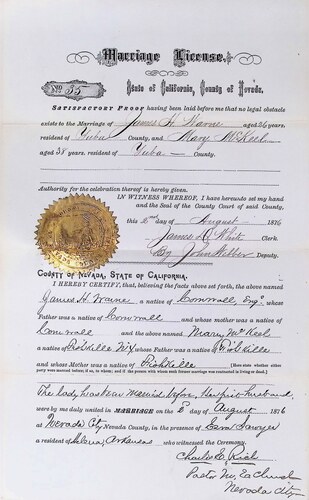 Marriage License.
No. 35
State of California, County of Nevada.
SATISFACTORY PROOF having been laid before me that no legal obstacles
exists to the Marriage of James H. Warne aged 26 years,
resident of Yuba County, and Mary McKeel
aged 38 years, resident of Yuba County.
Authority for the celebration thereof is hereby given.
IN WITNESS WHEREOF, I have hereunto set my hand
and the Seal of the County Court of said County,
this 2nd day of August 1876
James D. White Clerk.
By John Webber Deputy.
COUNTY OF NEVADA, STATE OF CALIFORNIA.
I HEREBY CERTIFY, that, believing the facts above set forth, the above named
James H. Warne, a native of Cornwall Eng., whose
Father was a native of Cornwall and whose mother was a native of
Cornwall and the above named Mary McKeel
a native of whose Father was a native of
and whose Mother was a native of [Here state whether either
party were married before, if so, to whom; and if the persons with whom such former marriage was contracted is living or dead.]
The lady has been married before, Her first husband
were by me duly united in MARRIAGE on the 2 day of August 1876
at Nevada City Nevada County, in the presence of Sawyer
a resident of Helena, Arkansas who witnessed the Ceremony.
Charles E. Rich
Pastor M. E. Church
Nevada City